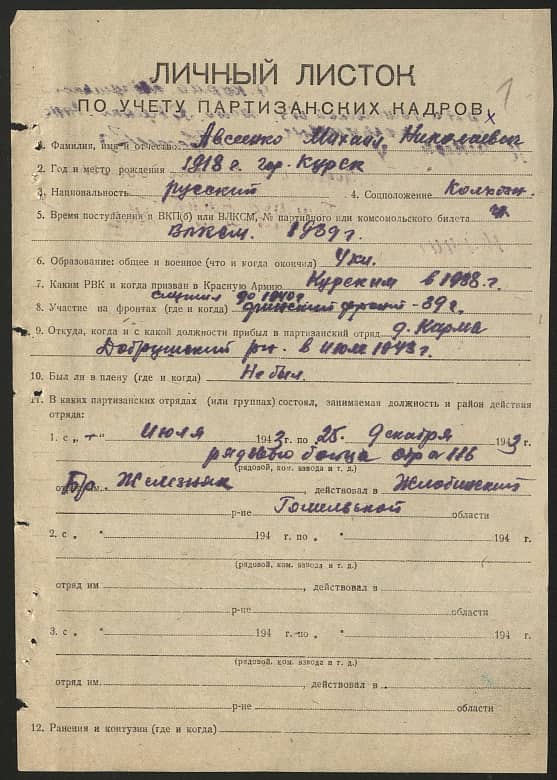 1
ЛИЧНЫЙ ЛИСТОК
ПО УЧЕТУ ПАРТИЗАНСКИХ КАДРОВ
1. Фамилия, имя и отчество Авсеенко Михаил Николаевич
2. Год и место рождения 1918 г. гор. Курск
3. Национальность русский 4. Соцположение Колхоз-
5. Время поступления в ВКП(б) или ВЛКСМ, № партийного или комсомольского билета
ВЛКСМ. 1939 г.
6. Образование: общее и военное (что и когда окончил) 4 кл.
7. Каким РВК и когда призван в Красную Армию Курским в 1938 г.
служил до 1940 г.
8. Участие на фронтах (где и когда) финский фронт - 39 г.
9. Откуда, когда и с какой должности прибыл в партизанский отряд д. Карма
Добрушский рн. в июле 1943 г.
10. Был ли в плену (где и когда) Не был.
11. В каких партизанских отрядах (или группах) состоял, занимаемая должность и район действия
отряда:
1. с „ " Июля 1943 г. по 25 Декабря 1943 г.
рядового бойца отр 116
(рядовой, ком. взвода и т. д.)
отряд им. Бр. Железняк, действовал в Жлобинский
р-не Гомельской области
2. с „ " 194 г. по „ " 194 г.
(рядовой, ком. взвода и т. д.)
отряд им , действовал в
р-не области
3. с „ " 194 г. по „ " 194 г.
(рядовой, ком. взвода и т. д.)
отряд им. , действовал в
р-не области
12. Ранения и контузии (где и когда)